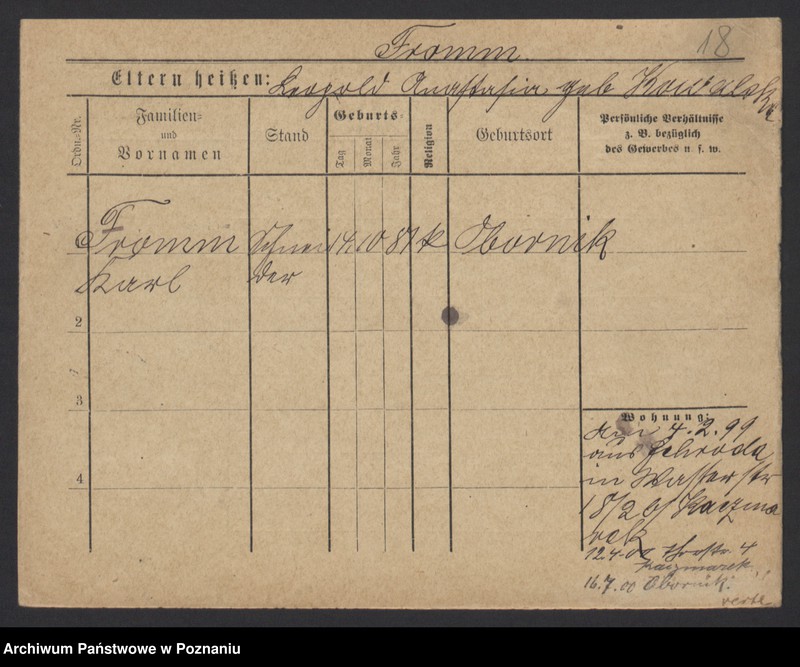 Fromm
18
Eltern heißen: Leopold Anastasia geb Kowalska
Ordn.-Nr.
Familien- und Vornamen
Stand
Geburts-
Tag
Monat
Jahr
Religion
Geburtsort
Persönliche Verhältnisse
z. B. bezüglich
des Gewerbes u. s. w.
Fromm Schnei 10 k Obornik
Karl der
2
3
4
Wohnung:
4.2.99
aus Schroda
in Wasserstr
18/20 b/ Kaczma
rek
12.4.00 4
Kaczmarek
16.7.00 Obornik.
verte
Archiwum Państwowe w Poznaniu